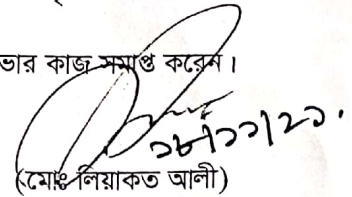 ভার কাজ সমাপ্ত করেন।
১৮/১১/২১.
(মোঃ লিয়াকত আলী)